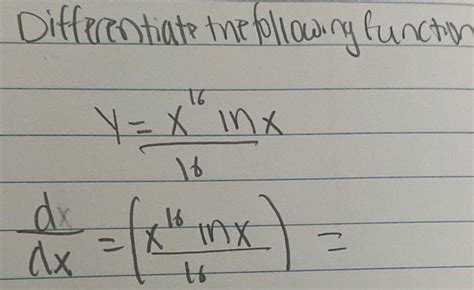 Differentiate the following function
y = x^16 ln x / 16
dx/dx = (x^16 ln x / 16) =